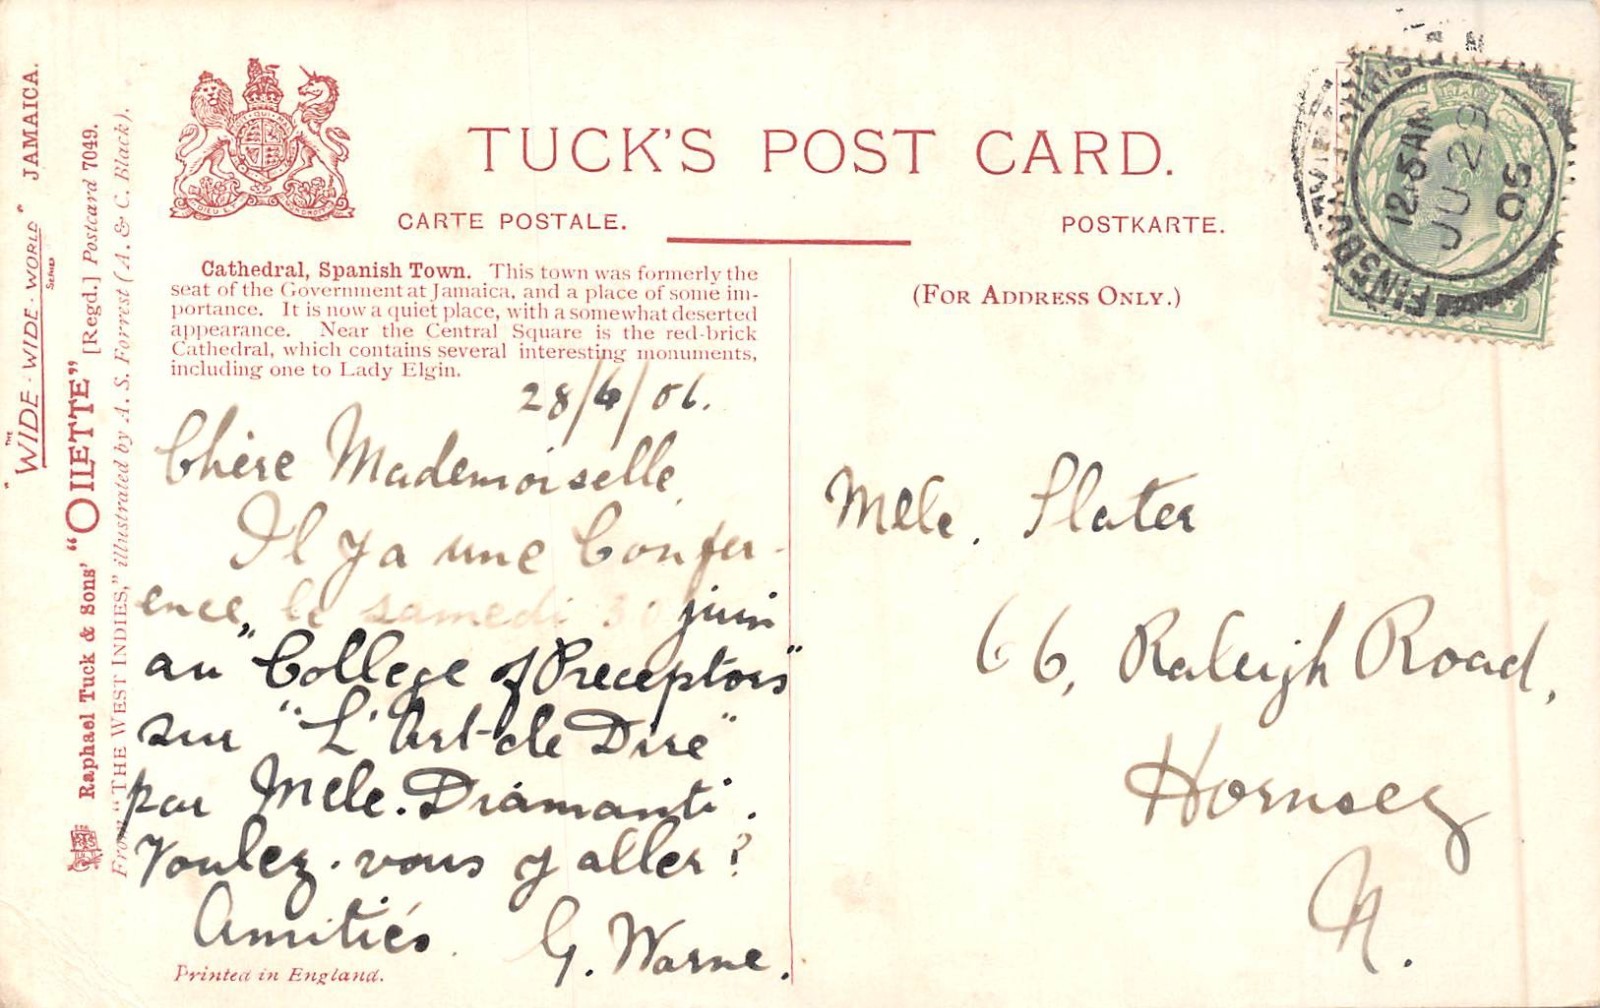 "THE WIDE-WIDE-WORLD" SERIES JAMAICA.
Raphael Tuck & Sons' "OILETTE" [Regd.] Postcard 7049.
From "THE WEST INDIES," illustrated by A. S. Forrest (A. & C. Black).
TUCK'S POST CARD.
CARTE POSTALE.
POSTKARTE.
Cathedral, Spanish Town. This town was formerly the
seat of the Government at Jamaica, and a place of some im-
portance. It is now a quiet place, with a somewhat deserted
appearance. Near the Central Square is the red-brick
Cathedral, which contains several interesting monuments,
including one to Lady Elgin.
28/6/06.
Chère Mademoiselle,
Il y a une Confer-
ence, le samedi 30 juin
au "College of Preceptors"
sur "L'Art de Dire"
par Melle. Diamanti.
Voulez-vous y aller?
Amitiés.
G. Warne.
Printed in England.
(FOR ADDRESS ONLY.)
Melle. Slater
66, Raleigh Road,
Hornsey
N.
12.15 AM
JU 29
06